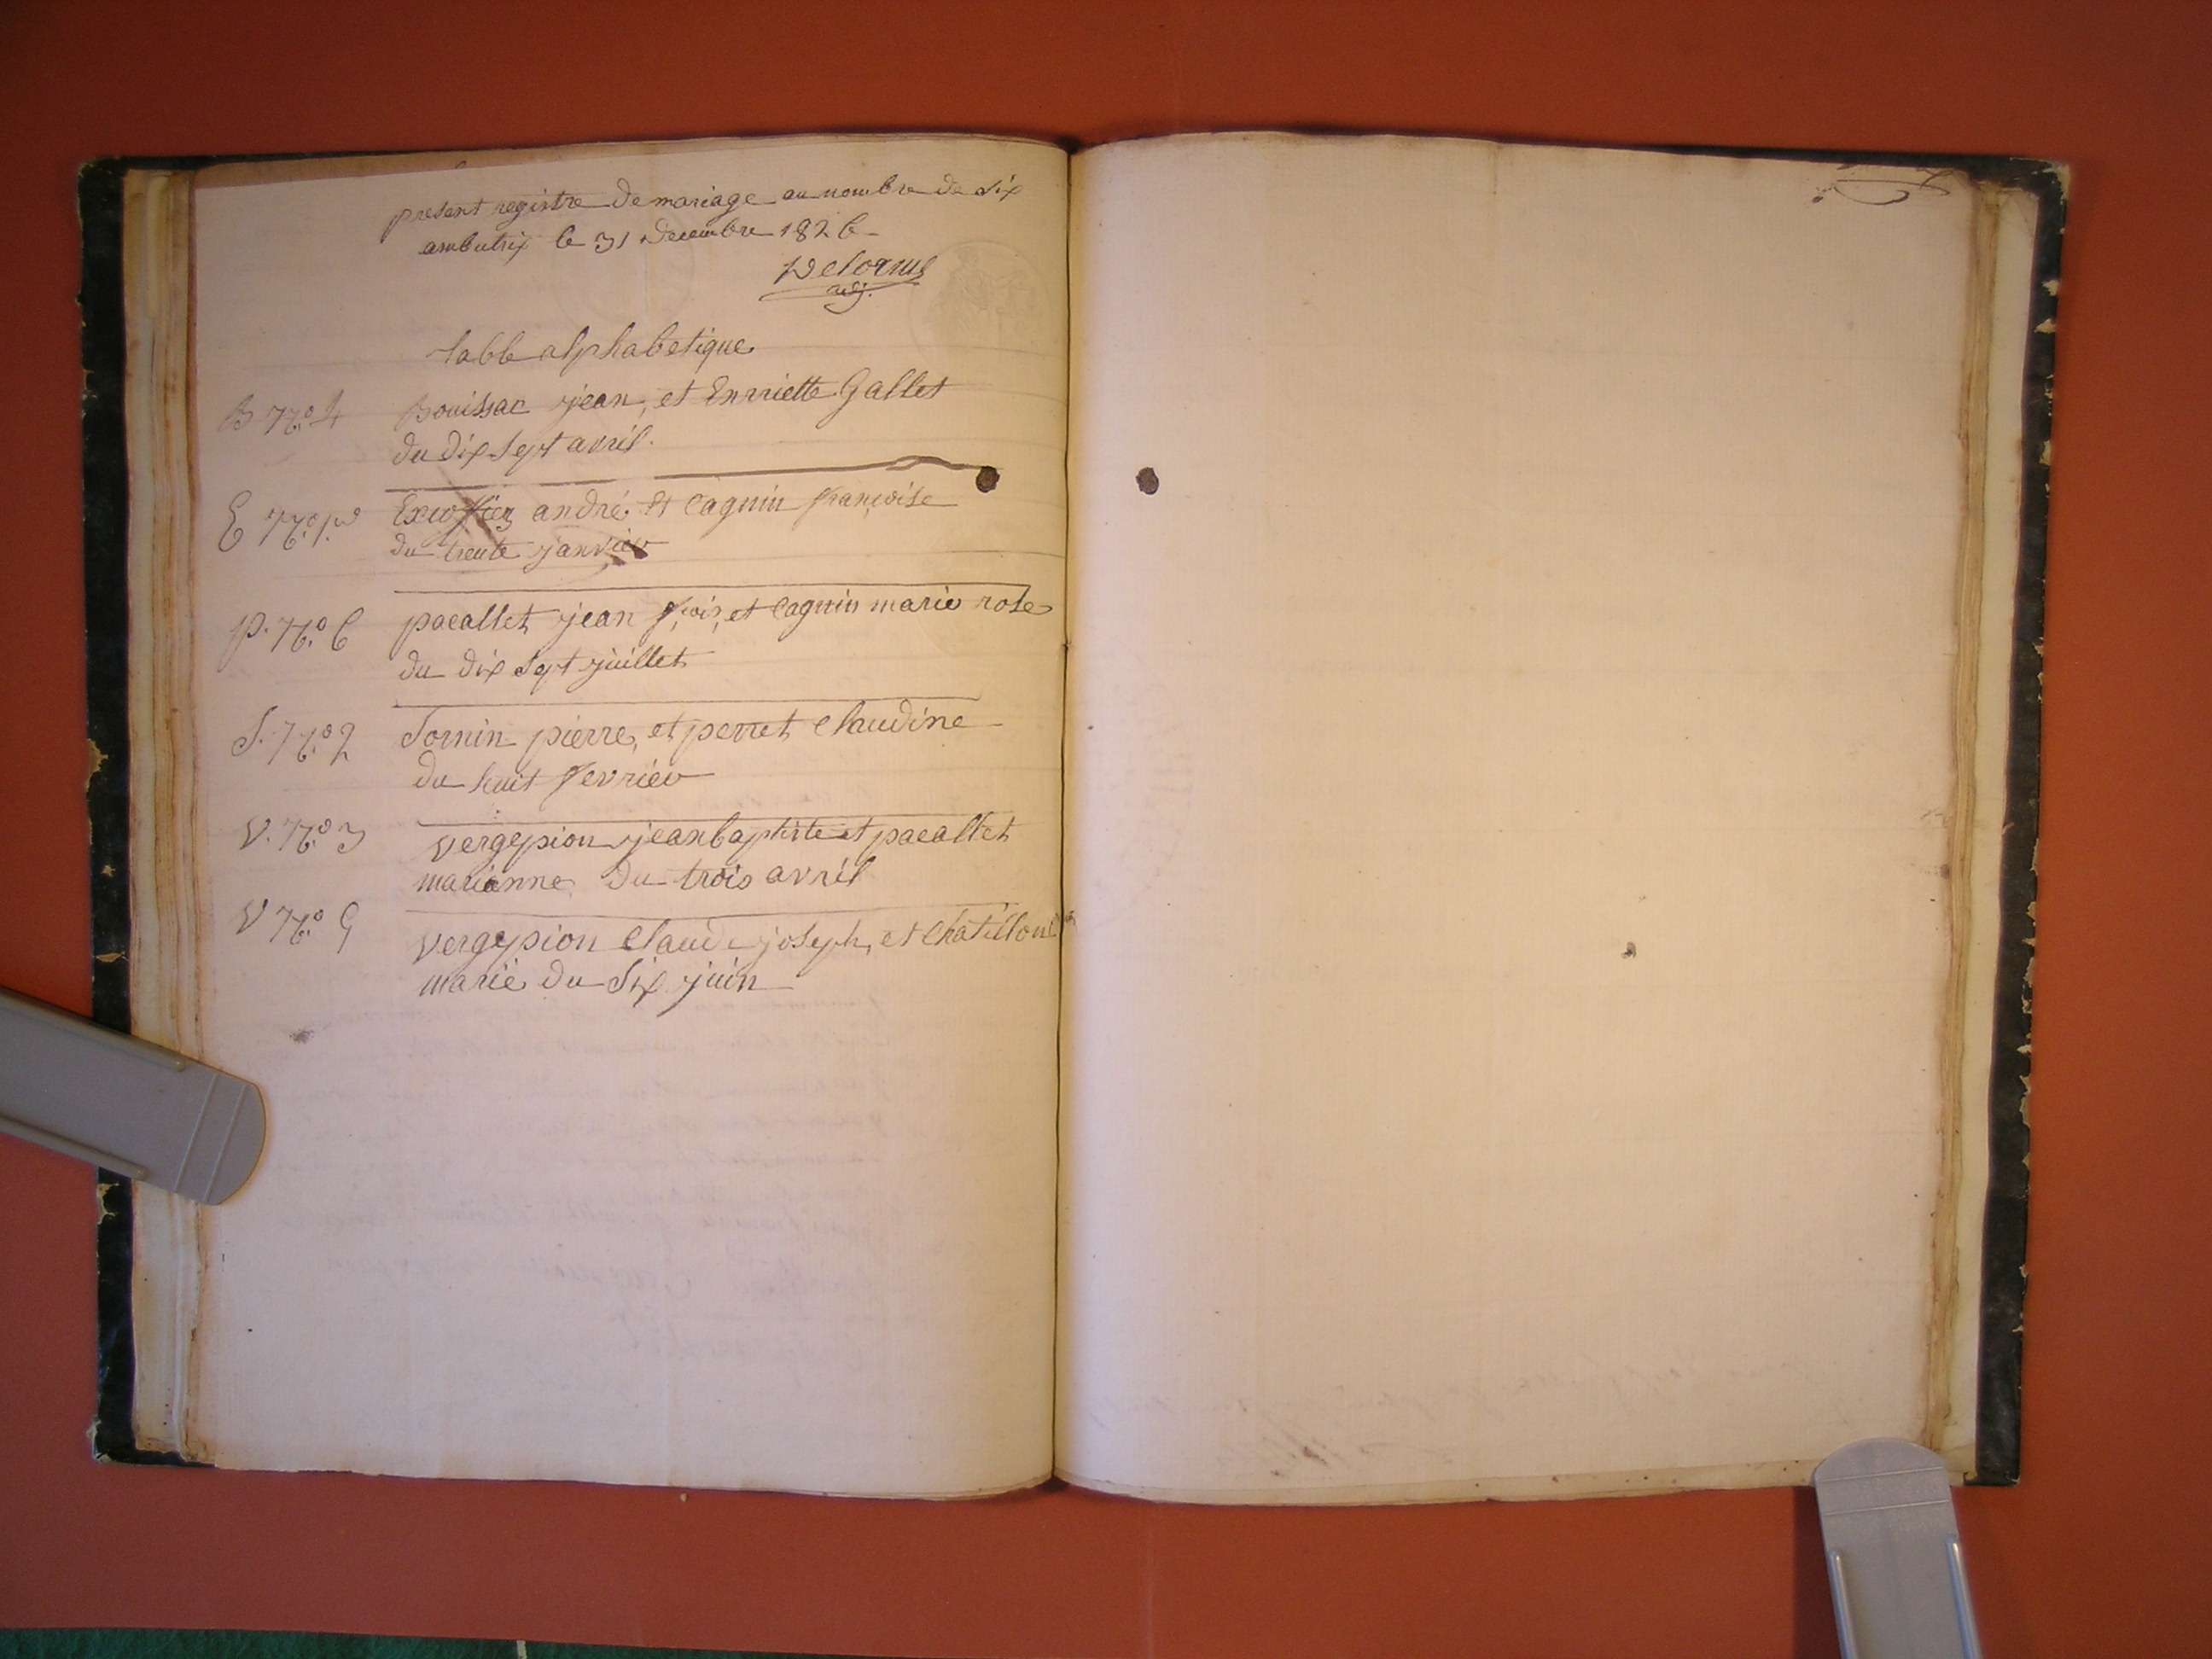 present registre de mariage au nombre de six
ambutrix le 31 decembre 1826
Delorme
adj.
table alphabetique
B. N.º 4 Bouissac jean, et Enrriette Gallet
du dix sept avril.
E N.º 1.er Excoffier andré et Cagnin françoise
du trente janvier
p. N.º 6 pacallet jean f.cois, et Cagnin marie rose
du dix sept juillet
S. N.º 2 Sornin pierre, et perret Claudine
du huit fevrier
V. N.º 3 vergepion jean baptiste et pacallet
marianne du trois avril
V N.º 5 vergepion Claude joseph, et Chatillon
marie du six juin